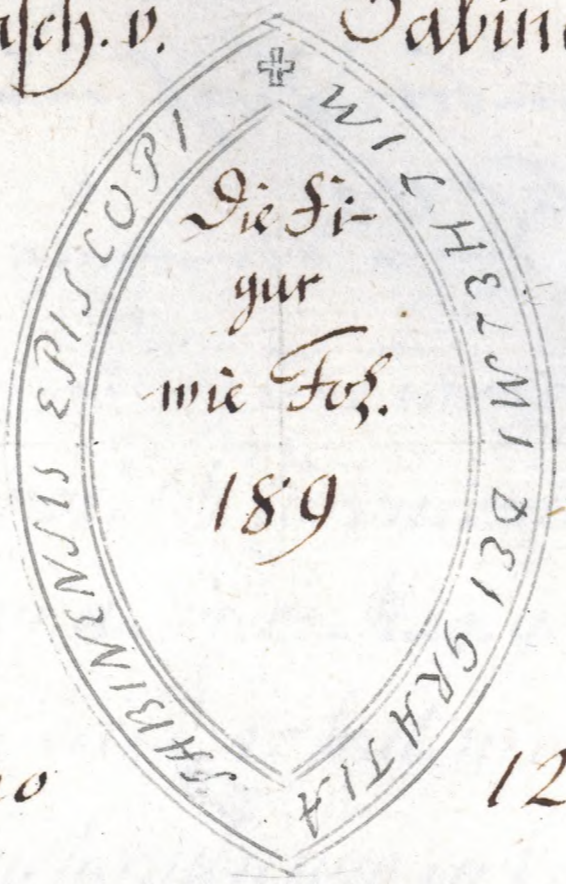 asch. v. Sabin
✠ WILHELMI DEI GRATIA SABINENSIS EPISCOPI
Die Fi-
gur
wie Fol.
189
no 12